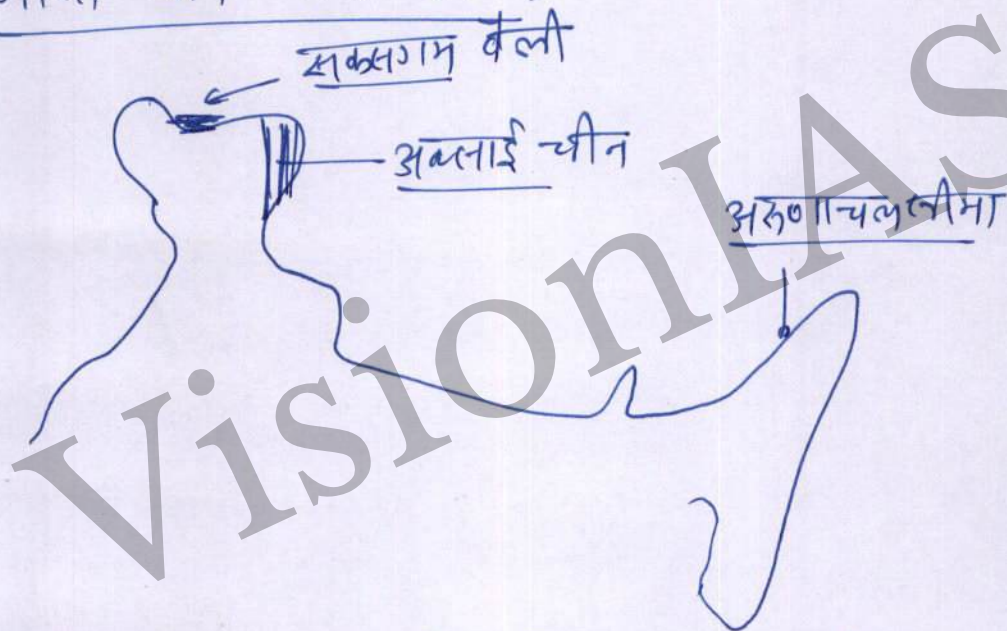 सक्सगाम वैली
अक्साई चीन
अरुणाचल सीमा
VisionIAS